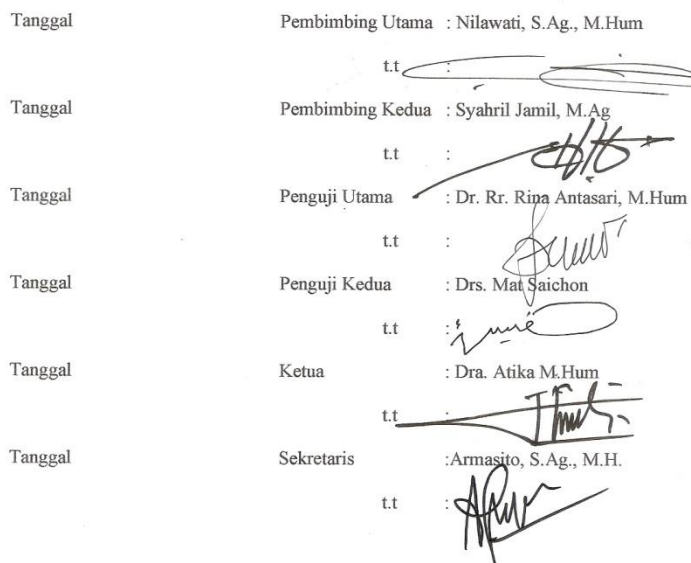 Tanggal Pembimbing Utama : Nilawati, S.Ag., M.Hum
t.t :
Tanggal Pembimbing Kedua : Syahril Jamil, M.Ag
t.t :
Tanggal Penguji Utama : Dr. Rr. Rina Antasari, M.Hum
t.t :
Tanggal Penguji Kedua : Drs. Mat Saichon
t.t :
Tanggal Ketua : Dra. Atika M.Hum
t.t :
Tanggal Sekretaris :Armasito, S.Ag., M.H.
t.t :